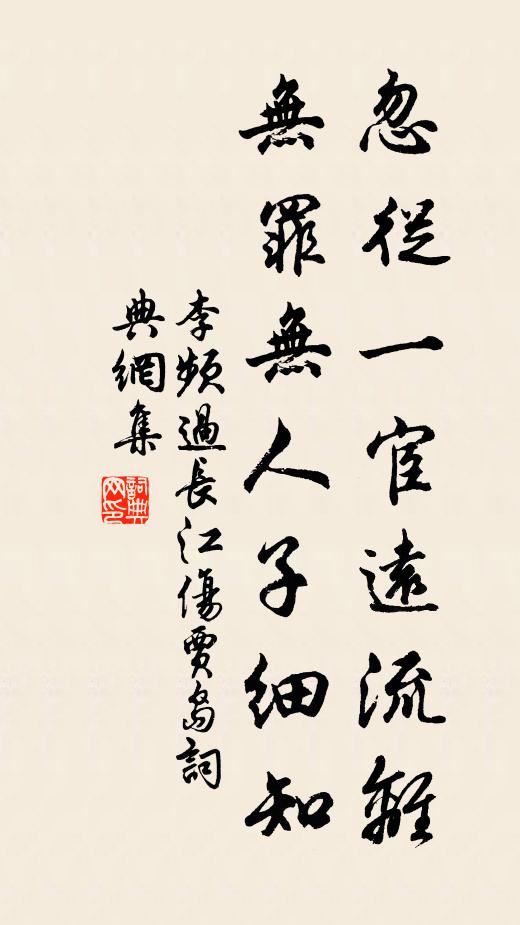 忽從一宦遠流離
無罪無人子細知
李頻過長江傷賈島詞
典網集
詞典网印